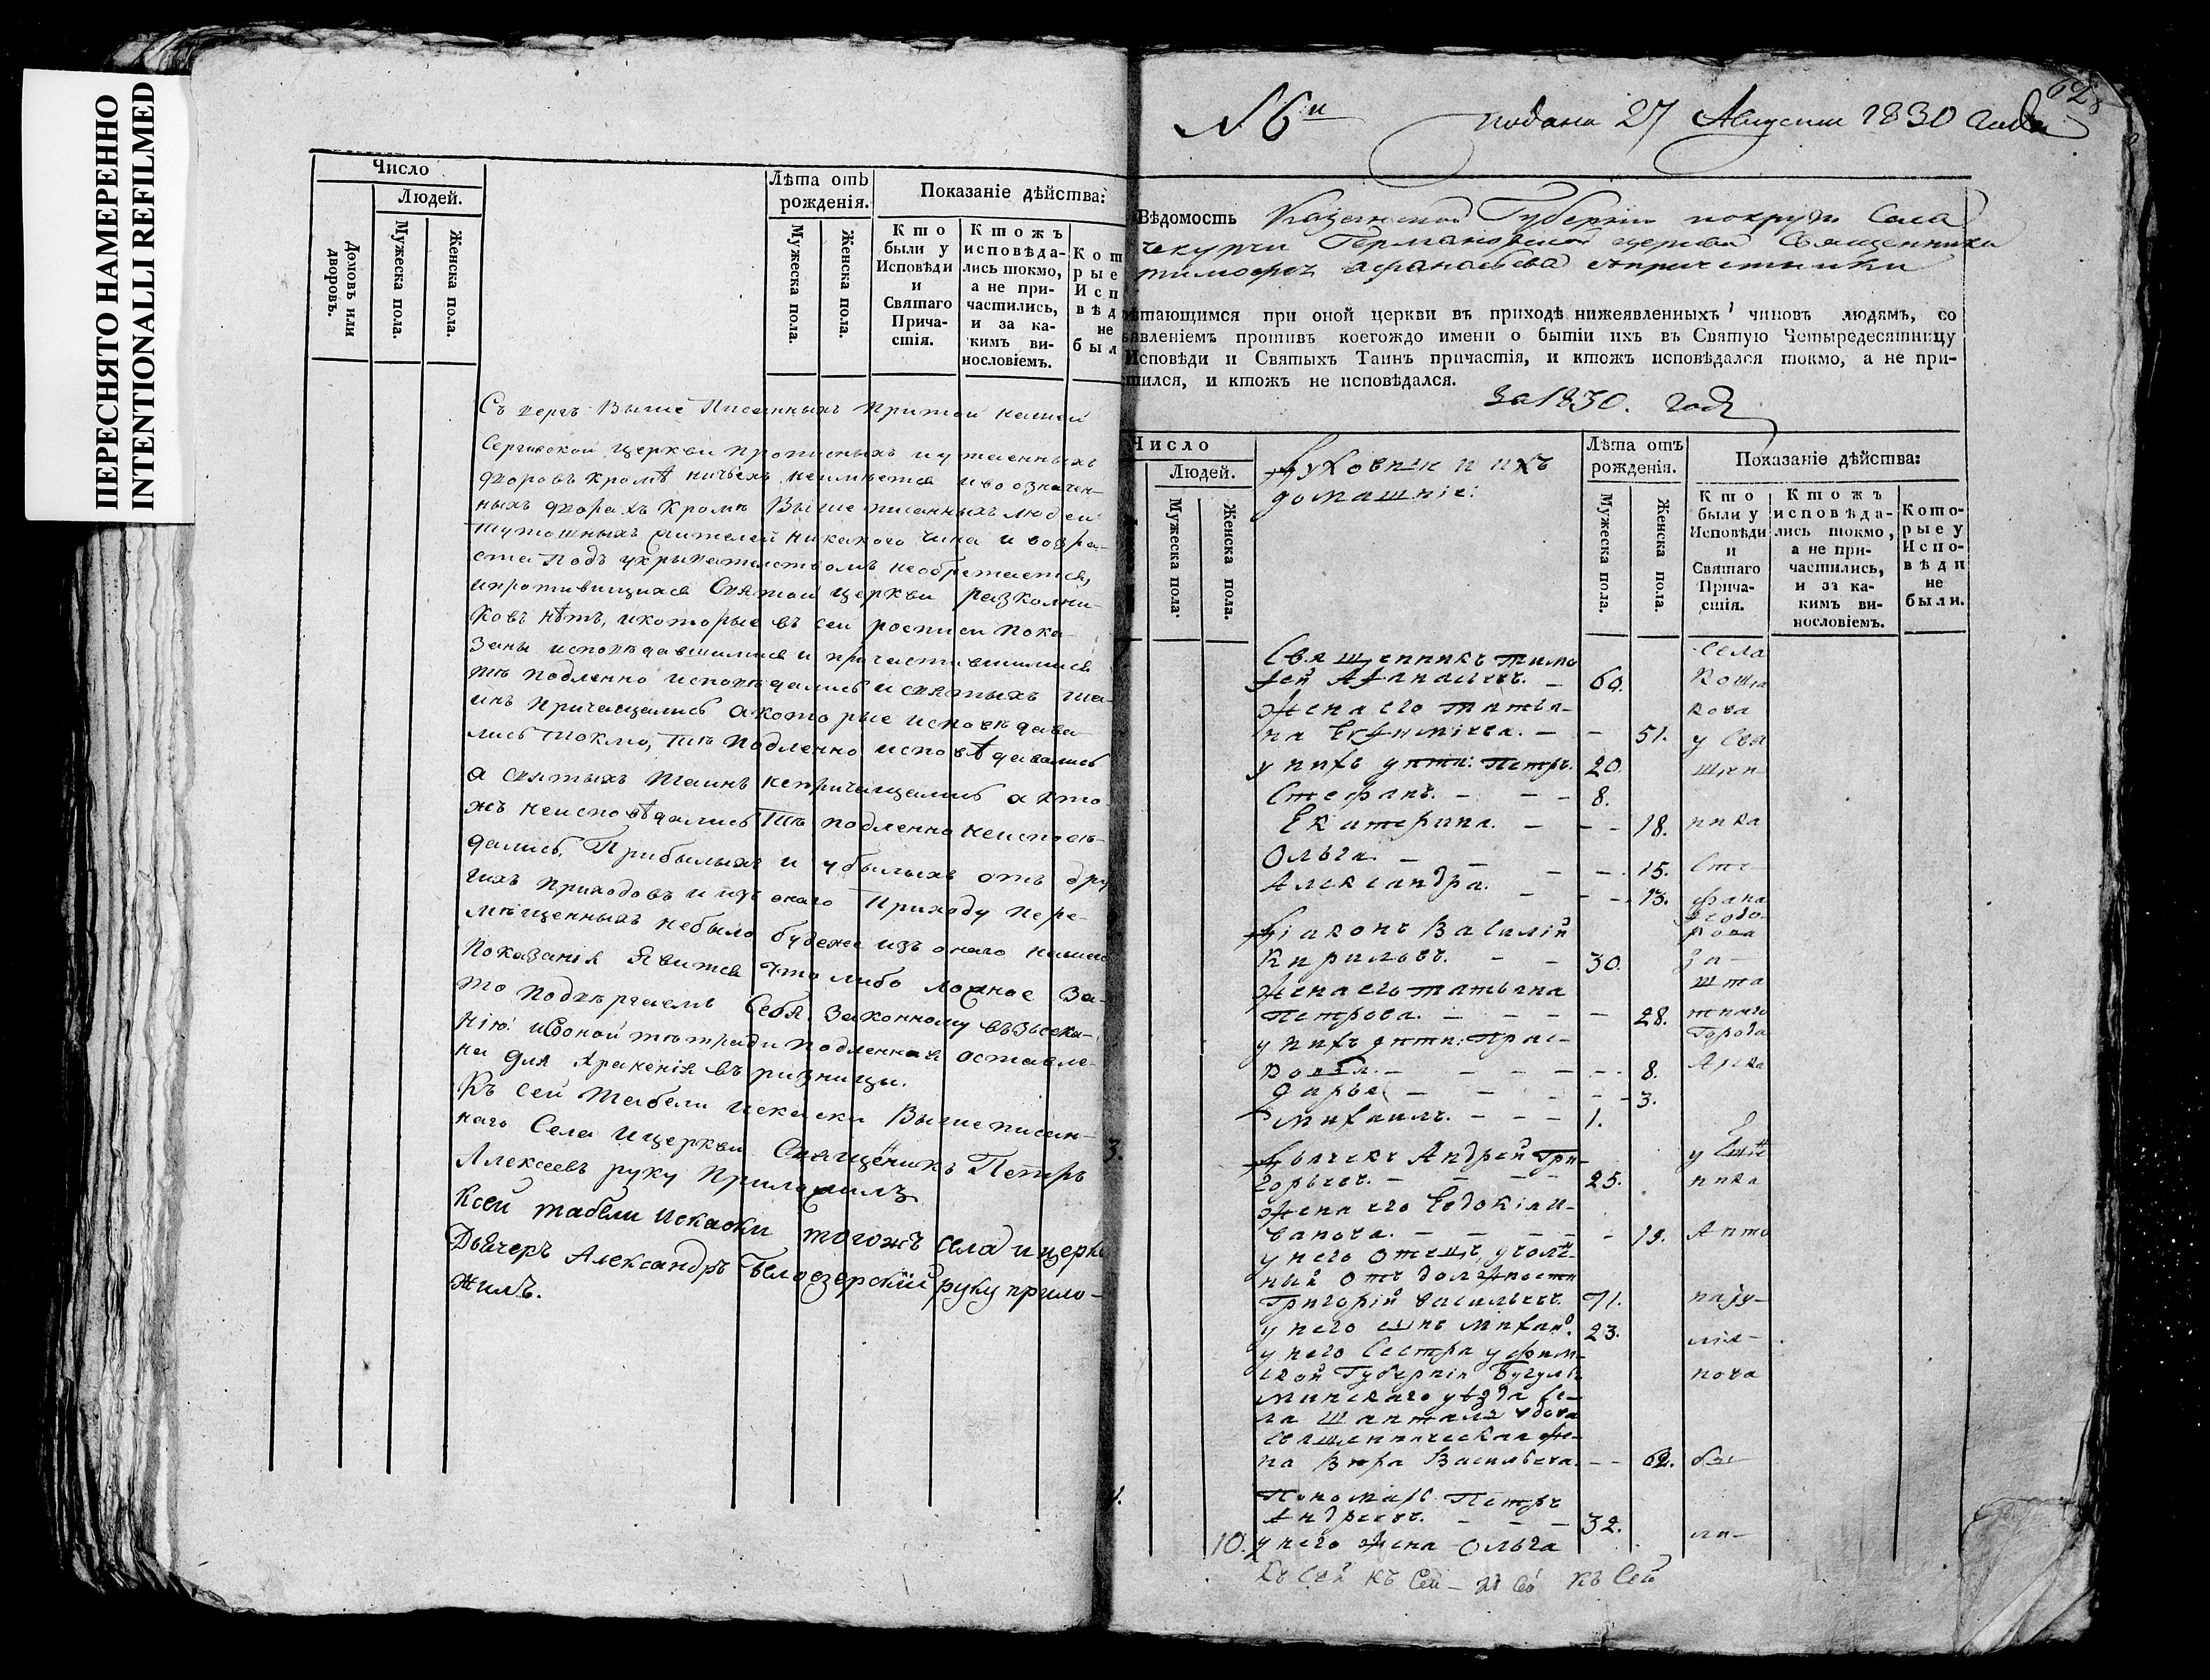 ПЕРЕСНЯТО НАМЕРЕННО
INTENTIONALLI REFILMED
Число
Людей.
Домовъ или дворовъ.
Мужеска пола.
Женска пола.
Лѣта отъ рожденія.
Мужеска пола.
Женска пола.
Показаніе дѣйства:
Кто были у Исповѣди и Святаго Причастія.
Ктожъ исповѣдались токмо, а не причастились, и за какимъ винословіемъ.
Съ верхъ выше писанныхъ при той нашей
Сергиевской церкви прописныхъ и утаенныхъ
дворовъ кромѣ ничьехъ неимѣется и во означен-
ныхъ дворахъ кромѣ выше писанныхъ людей
тутошныхъ жителей никакого чина и возра-
ста подъ укрывательствомъ необретается,
и противищихся Святой церкви разколни-
ковъ нѣтъ, и которые въ сей росписи пока-
заны исповѣдавшимися и причастившимися
тѣ подленно исповѣдались и святыхъ та-
инъ причащались а которые исповѣдава-
лись токмо, тѣ подленно исповѣдавались
а святыхъ таинъ непричащались а кто-
жъ неисповѣдались тѣ подленно неисповѣ-
дались. Прибылыхъ и убылыхъ отъ дру
гихъ приходовъ и изъ онаго приходу пере-
мѣщенныхъ небыло будеже изъ онаго нашего
показанія явится что либо ложное за-
то подвѣргаемъ себя законному възыска-
нію: и съ оной тетради подленная оставле-
на для храненія въ ризницы.
Къ сей табели и скаски выше писан-
наго села и церкви Священникъ Петръ
Алексеевъ руку приложилъ
К сей табели и скаски тогожъ села и церкв
Дьячекъ Александръ Белоезерский руку прило-
жилъ.
N 6й
подана 27 Августа 1830 года
62
Вѣдомость Казанской Губерніи . . . Села
Чекурчи Германовской церкви Священника
Тимофея Афанасьева съ причетники
обрѣтающимся при оной церкви въ приходѣ нижеявленныхъ чиновъ людямъ, со
изъявленіемъ противъ коегождо имени о бытіи ихъ въ Святую Четыредесятницу
Исповѣди и Святыхъ Таинъ причастія, и ктожъ исповѣдался токмо, а не при-
частился, и ктожъ не исповѣдался.
За 1830. годъ
Число
Людей.
Мужеска пола.
Женска пола.
Духовнии и ихъ
домашніе:
Лѣта отъ рожденія.
Мужеска пола.
Женска пола.
Показаніе дѣйства:
Кто были у Исповѣди и Святаго Причастія.
Ктожъ исповѣдались токмо, а не причастились, и за какимъ винословіемъ.
Которые у Исповѣди не были.
Священникъ Тимо
фей Афанасьевъ. – 60.
Жена его Татья-
на Евфимиева. – – 51.
у нихъ дети: Петръ. 20.
Стефанъ. – – – 8.
Екатерина. – – – 18.
Ольга. – – – – 15.
Александра. – – – 13.
Діаконъ Василій
Кириловъ. – – 30.
Жена его Татьяна
Петрова. – – – – 28.
у нихъ дети: Прас-
ковья. – – – – 8.
Дарья – – – – 3.
Михаилъ. – – – 1.
3.
Дьячекъ Андрей Гри-
горьевъ. – – – – 25.
Жена его Евдокія И-
ванова. – – – – 19.
у него отецъ, уволе-
ный отъ должности
Григорій Васильевъ. 71.
у него сынъ Михаи. 23.
у него сестра Уфим-
ской Губерніи Бугуль-
минскаго уѣзда се-
ла Шантала вдова
священническая же-
на Вера Васильева. – – 62.
4.
Пономарь Петръ
Андреевъ. – – – 32.
10. у него жена Ольга
Села
Кошла
кова
у Свя
щен
ника
Сте
фана
Феодо-
рова
За-
шта
тнаго
Города
Арска
у Свще
нника
Анто
Къ Сей къ Сей – къ Сей